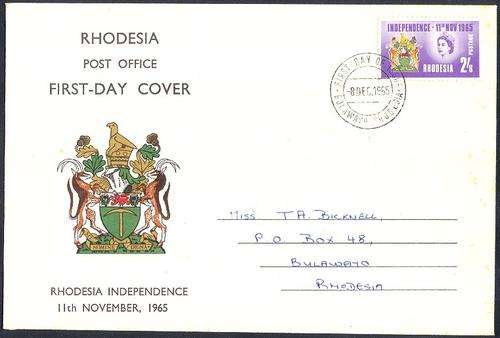 RHODESIA
POST OFFICE
FIRST-DAY COVER
INDEPENDENCE - 11TH NOV 1965
RHODESIA 2/6
POSTAGE
FIRST DAY OF ISSUE
8 DEC. 1965
BULAWAYO RHODESIA
SIT NOMINE DIGNA
Miss T.A. BICKNELL,
P.O. BOX 48,
BULAWAYO
RHODESIA
RHODESIA INDEPENDENCE
11th NOVEMBER, 1965